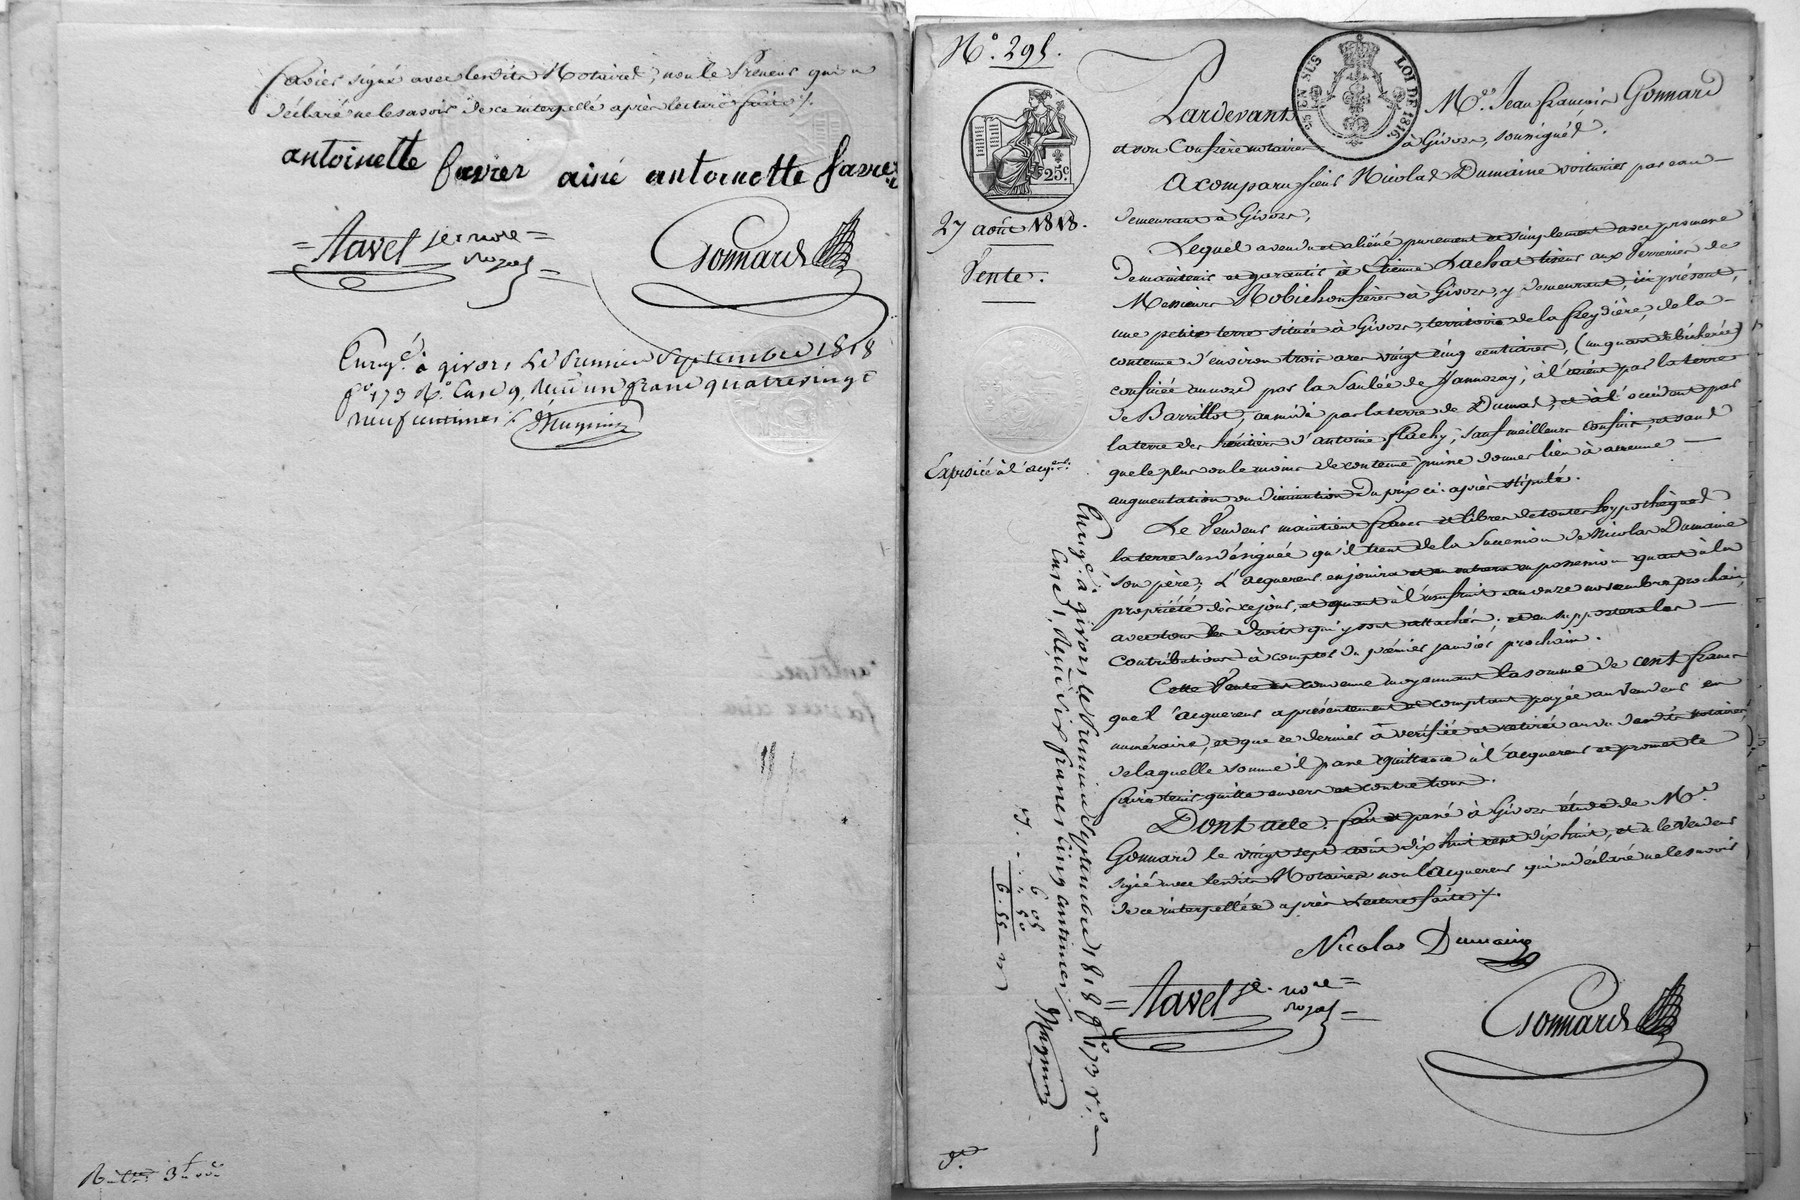 favier signé avec lesdits Notaires, non le Preneur qui a
déclaré ne le savoir de ce interpellé après lecture faite /.
antoinette favier ainé antoinette favre
= Tavel jeune nore =
royal =
Gonnard
Enreg.é à givors Le Premier Septembre 1818
f.o 173 R.o Case 9, Reçu un franc quatrevingt
neuf centimes /. Magnin
N.o 295.
25 EN SUS
LOI DE 1816.
25.c
27 août 1818.
Vente.
Expédié à l'acq.
Pardevant M.e Jean françois Gonnard
et son Confrère notaires à Givors, soussignés.
A comparu sieur Nicolas Dumaine voiturier par eau
demeurant à Givors,
Lequel a vendu et aliéné purement et simplement avec promesse
de maintenir et garantir à Etienne Lachat tiseur aux Verreries de
Messieurs Robichon frères à Givors, y demeurant, ici présent,
une petite terre située à Givors, territoire de la freydière, de la
contenue d'environ trois ares vingt cinq centiares, (un quart de bicherée)
confinée au nord par la Saulée de Jannozay; à l'orient par la terre
de Barrillot, au midi par la terre de Dumas, et à l'occident par
la terre des héritiers d'antoine flachy, sauf meilleurs confins, et sans
que le plus ou le moins de contenue puisse donner lieu à aucune
augmentation ou diminution du prix ci-après stipulé.
Le Vendeur maintient franc et libre de toutes hypothèques
la terre sus désignée qu'il tient de la Succession de Nicolas Dumaine
son père; L'acquereur en jouira et en entrera en possession quant à la
propriété dès ce jour, et quant à l'usufruit au onze novembre prochain,
avec tous les droits qui y sont attachés, et en supportera les
contributions à compter du premier janvier prochain.
Cette Vente est convenue moyennant la somme de cent francs
que l'acquereur a présentement et comptant payée au vendeur en
numéraire, et que ce dernier à vérifiée et retirée au vu desdits notaires,
de laquelle somme il passe quittance à l'acquereur et promet le
faire tenir quitte envers et contre tous.
Dont acte. fait et passé à Givors étude de M.e
Gonnard le vingt sept août dix huit cent dix huit, et a le vendeur
signé avec lesdits Notaires non l'acquereur qui a déclaré ne le savoir
de ce interpellé après Lecture faite /.
Nicolas Dumaine
= Tavel je. nore =
royal =
Gonnard
Enreg.é à givors le Premier Septembre 1818 f.o 173 R.o
Case 1, Reçu six francs cinq centimes /. Magnin
6 05
50
6.55